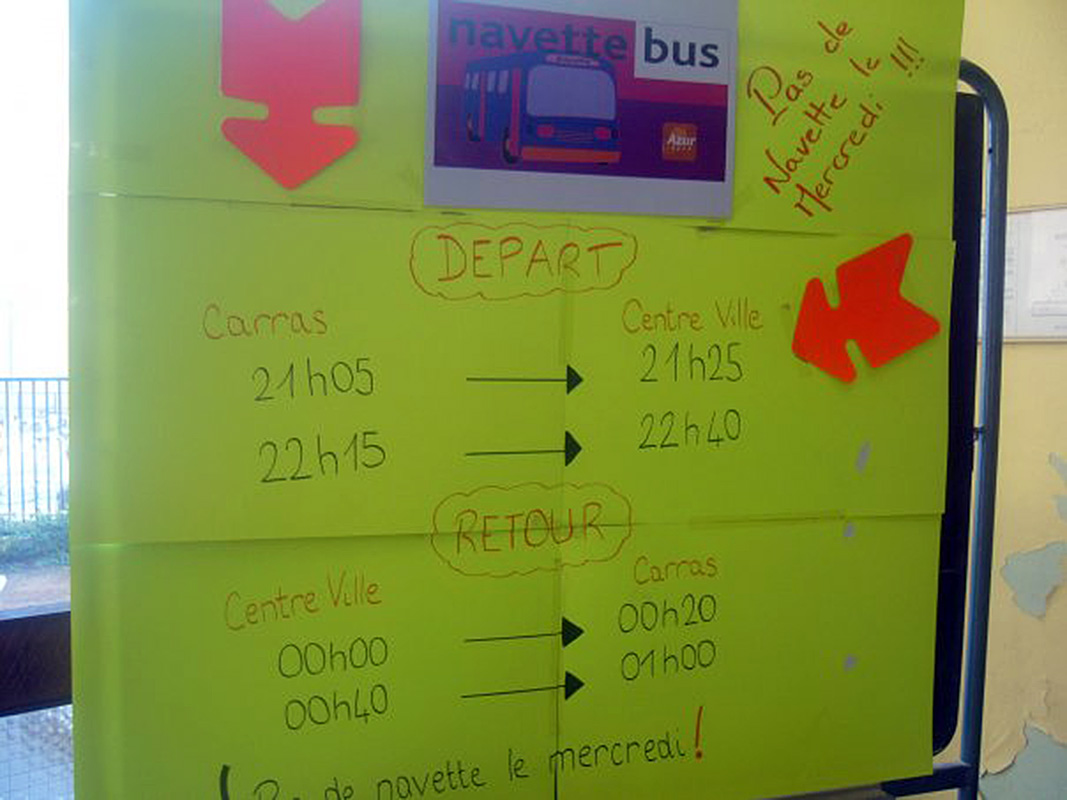 navette bus
Azur
Pas de
Navette le
Mercredi !!!
DEPART
Carras
Centre Ville
21h05
21h25
22h15
22h40
RETOUR
Centre Ville
Carras
00h00
00h20
00h40
01h00
Pas de navette le mercredi!